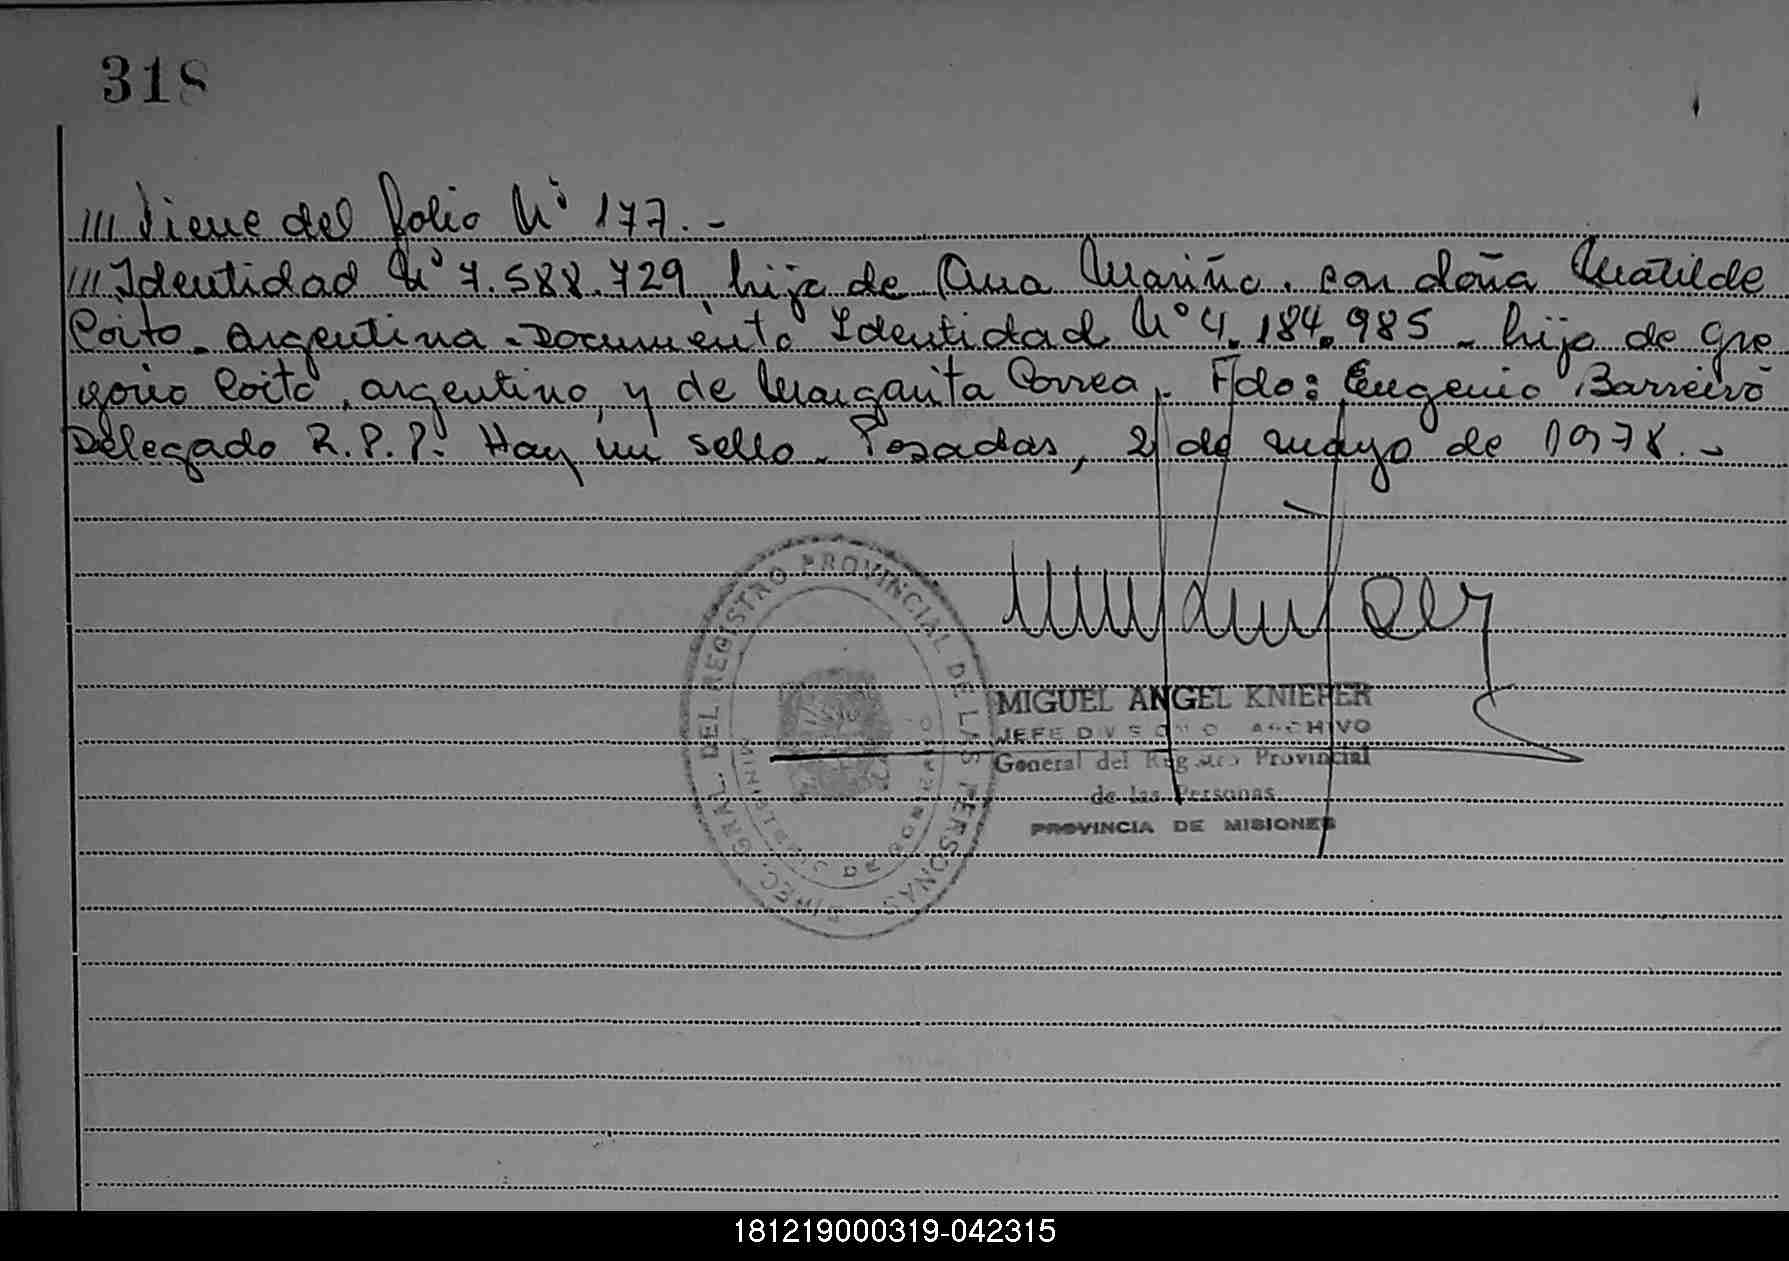 318
/// Viene del folio Nº 177.-
/// Identidad Nº 7.588.729, hijo de Ana Mariño. con doña Matilde
Coito. Argentina - Documento Identidad Nº 4.184.985 - hija de Gre
gorio Coito, argentino, y de Margarita Correa. Fdo: Eugenio Barreiro
Delegado R.P.P. Hay un sello. Posadas, 2 de mayo de 1978.-
DIREC. GRAL. DEL REGISTRO PROVINCIAL DE LAS PERSONAS
MIGUEL ANGEL KNIEPER
JEFE DIVISION ARCHIVO
General del Registro Provincial
de las Personas
PROVINCIA DE MISIONES
181219000319-042315